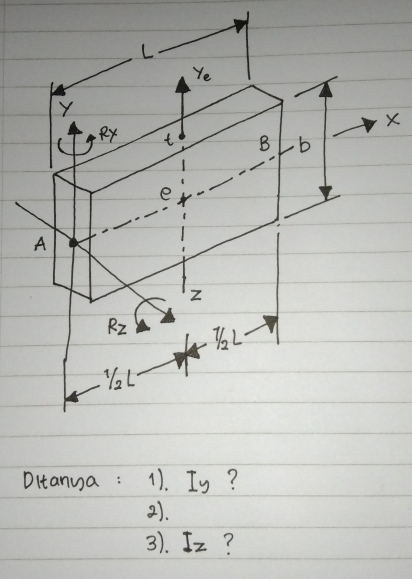 L
Ye
Y
RY
t
B
b
X
e
A
Z
RZ
1/2 L
1/2 L
Ditanya : 1). Iy ?
2).
3). Iz ?